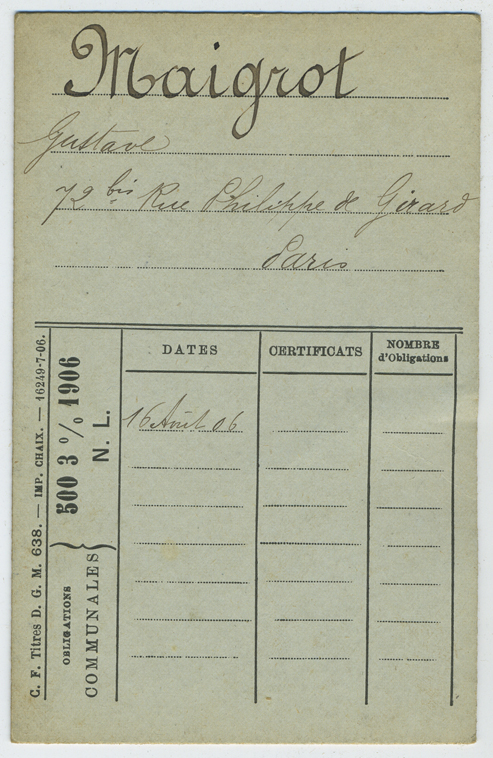 Maigrot
Gustave
72 bis Rue Philippe de Girard
Paris
C. F. Titres D. G. M. 638. — IMP. CHAIX. — 16249-7-06.
OBLIGATIONS
COMMUNALES
500 3 % 1906
N. L.
DATES
CERTIFICATS
NOMBRE
d'Obligations
16 Août 06